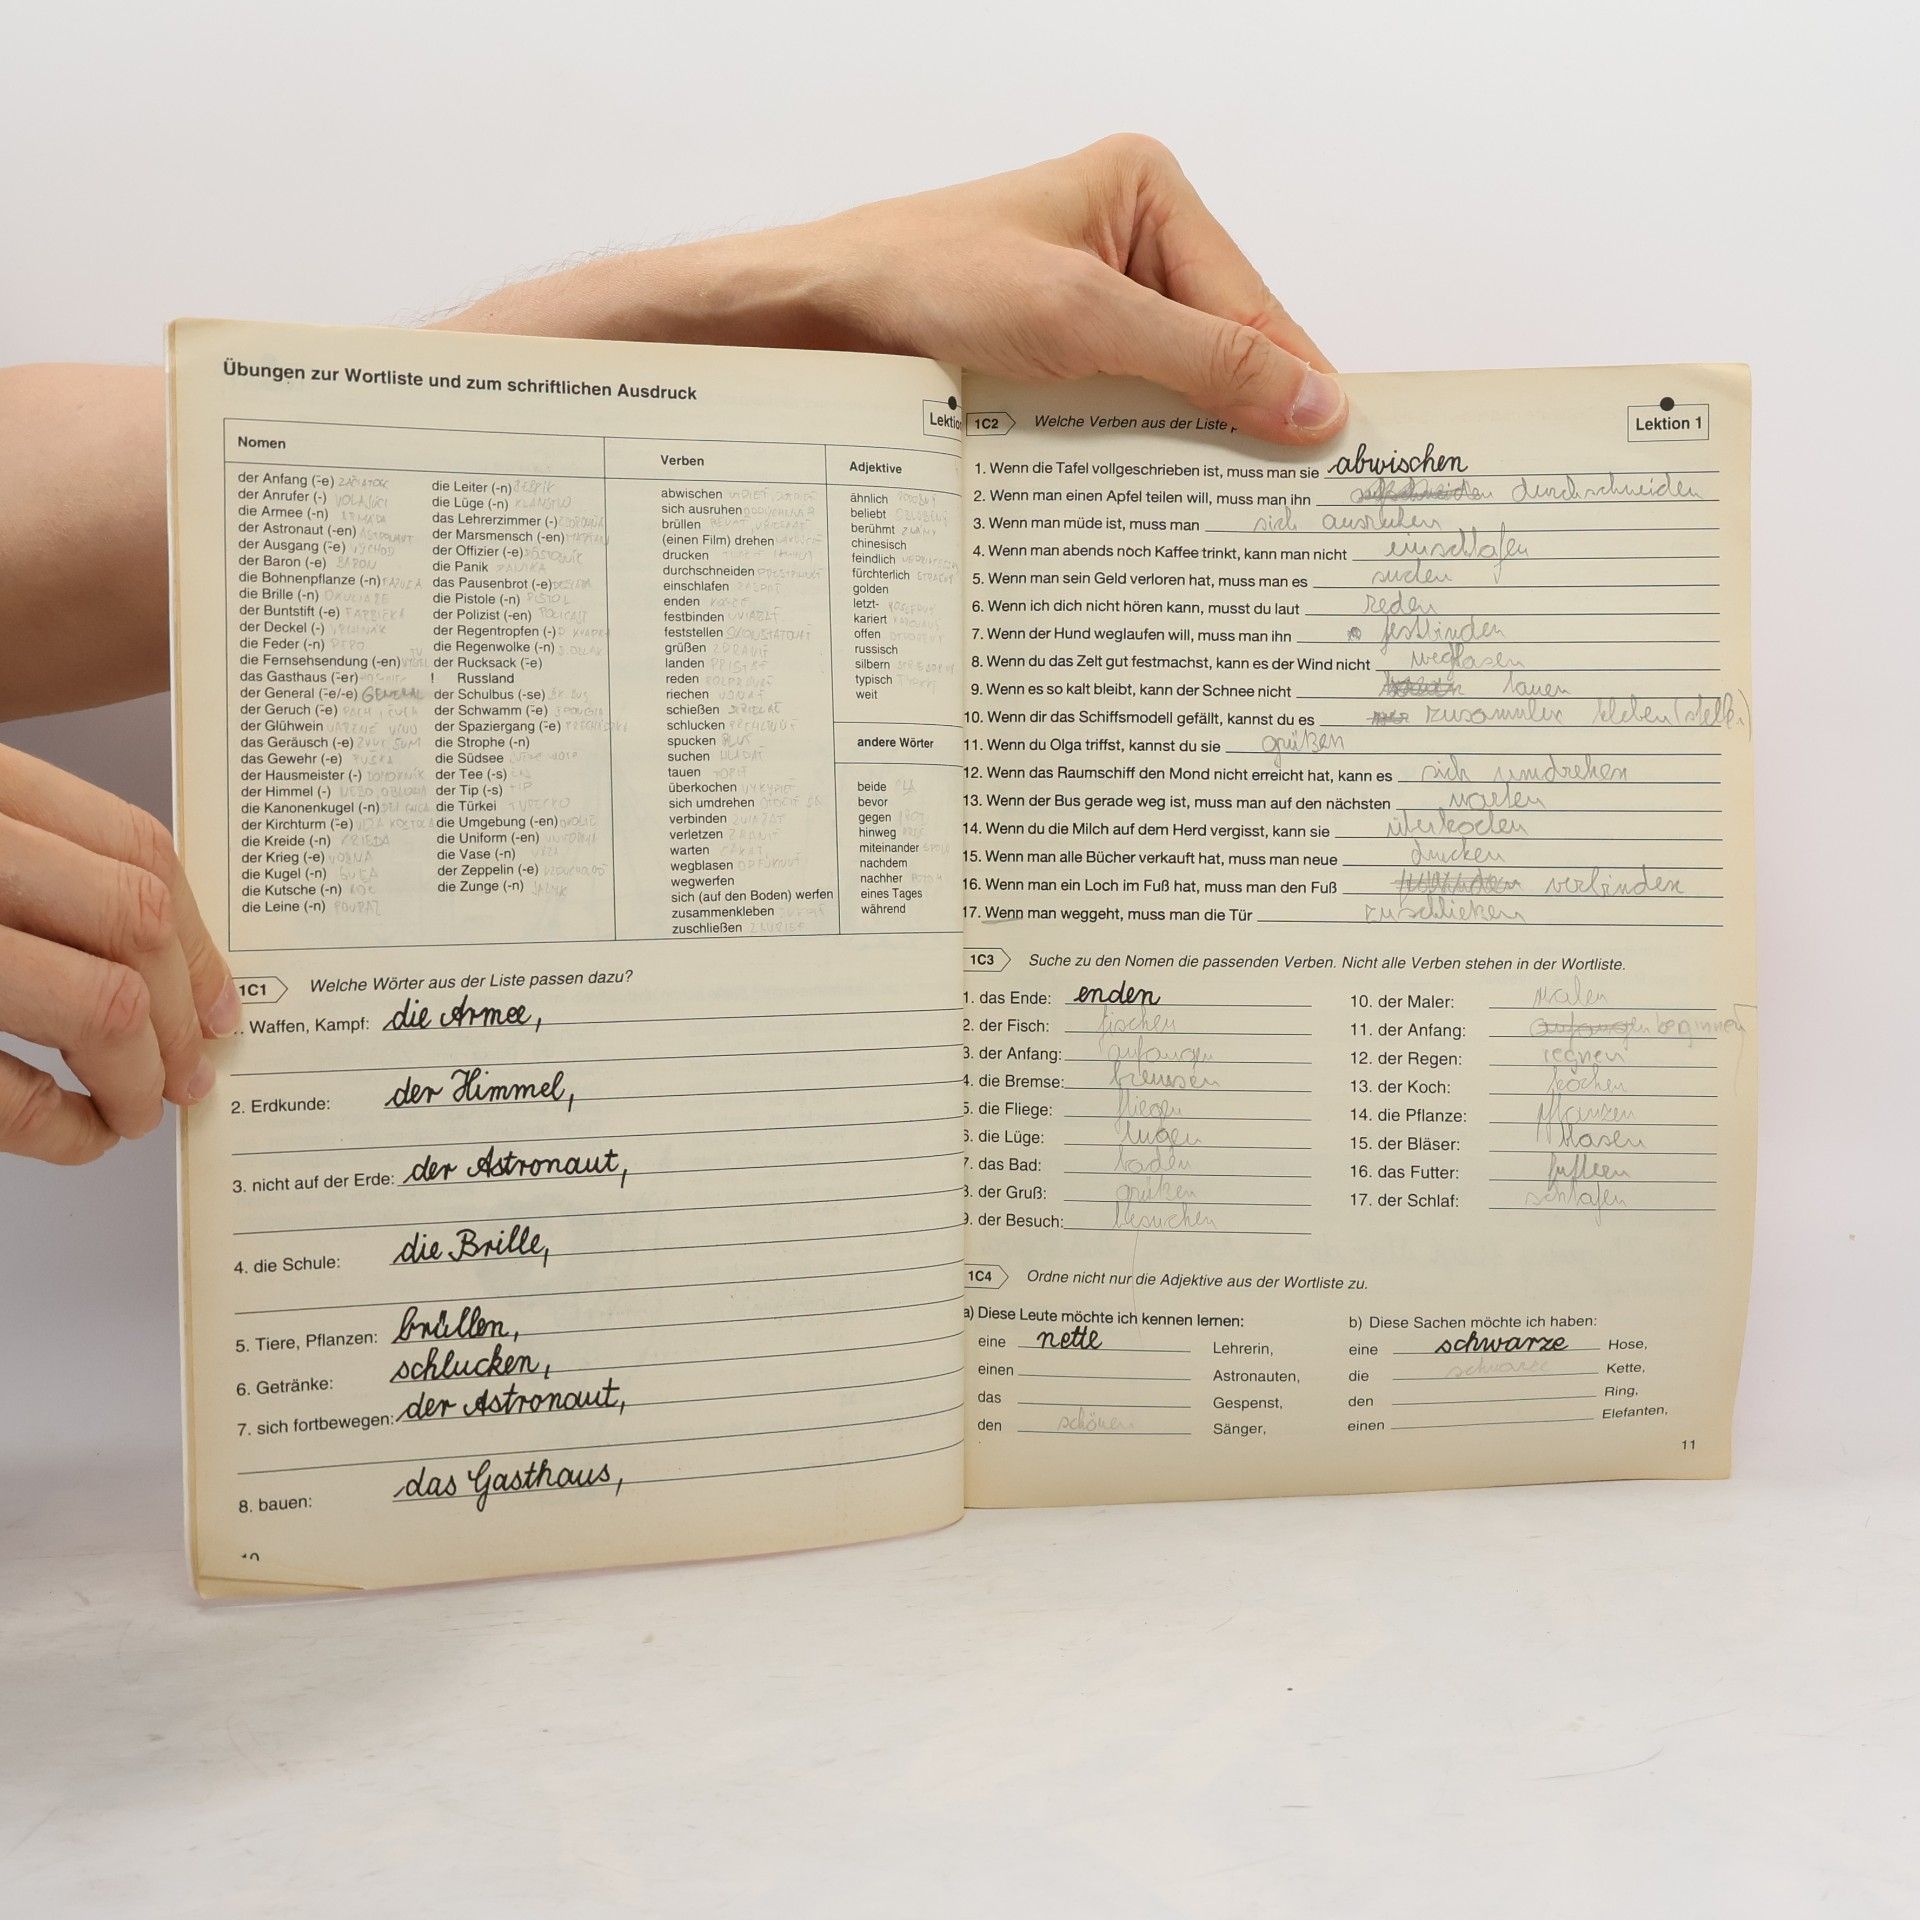 Übungen zur Wortliste und zum schriftlichen Ausdruck
Lektio
Nomen
der Anfang (-̈e)
der Anrufer (-)
die Armee (-n) ARMADA
der Astronaut (-en) ASTRONAUT
der Ausgang (-̈e) VÝCHOD
der Baron (-e) BARON
die Bohnenpflanze (-n)
die Brille (-n) OKULIARE
der Buntstift (-e) FARBIČKA
der Deckel (-)
die Feder (-n) PERO
die Fernsehsendung (-en)
das Gasthaus (-̈er)
der General (-̈e/-e) GENERAL
der Geruch (-̈e)
der Glühwein VARENÉ VÍNO
das Geräusch (-e) ZVUK, ŠUM
das Gewehr (-e) PUŠKA
der Hausmeister (-) DOMOVNÍK
der Himmel (-) NEBO, OBLOHA
die Kanonenkugel (-n)
der Kirchturm (-̈e) VEŽA KOSTOLA
die Kreide (-n) KRIEDA
der Krieg (-e) VOJNA
die Kugel (-n) GUĽA
die Kutsche (-n) KOČ
die Leine (-n) POVRAZ
die Leiter (-n) REBRÍK
die Lüge (-n) KLAMSTVO
das Lehrerzimmer (-)
der Marsmensch (-en)
der Offizier (-e) DÔSTOJNÍK
die Panik PANIKA
das Pausenbrot (-e) DESIATA
die Pistole (-n) PIŠTOĽ
der Polizist (-en) POLICAJT
der Regentropfen (-)
die Regenwolke (-n)
der Rucksack (-̈e)
! Russland
der Schulbus (-se)
der Schwamm (-̈e)
der Spaziergang (-̈e)
die Strophe (-n)
die Südsee
der Tee (-s) ČAJ
der Tip (-s) TIP
die Türkei TURECKO
die Umgebung (-en) OKOLIE
die Uniform (-en) UNIFORMA
die Vase (-n) VÁZA
der Zeppelin (-e)
die Zunge (-n) JAZYK
Verben
abwischen
sich ausruhen
brüllen
(einen Film) drehen
drucken
durchschneiden
einschlafen ZASPAŤ
enden
festbinden UVIAZAŤ
feststellen SKONŠTATOVAŤ
grüßen ZDRAVIŤ
landen PRISTÁŤ
reden
riechen
schießen
schlucken PREHLTNÚŤ
spucken
suchen HĽADAŤ
tauen TOPIŤ
überkochen VYKYPIEŤ
sich umdrehen OTOČIŤ SA
verbinden ZVIAZAŤ
verletzen ZRANIŤ
warten ČAKAŤ
wegblasen ODFÚKNUŤ
wegwerfen
sich (auf den Boden) werfen
zusammenkleben
zuschließen ZAVRIEŤ
Adjektive
ähnlich
beliebt OBĽÚBENÝ
berühmt ZNÁMY
chinesisch
feindlich
fürchterlich
golden
letzt-
kariert
offen OTVORENÝ
russisch
silbern
typisch TYPICKÝ
weit
andere Wörter
beide
bevor
gegen
hinweg
miteinander SPOLU
nachdem
nachher POTOM
eines Tages
während
1C1 Welche Wörter aus der Liste passen dazu?
. Waffen, Kampf: die Armee,
2. Erdkunde: der Himmel,
3. nicht auf der Erde: der Astronaut,
4. die Schule: die Brille,
5. Tiere, Pflanzen: brüllen,
6. Getränke: schlucken,
7. sich fortbewegen: der Astronaut,
8. bauen: das Gasthaus,
1C2 Welche Verben aus der Liste
Lektion 1
1. Wenn die Tafel vollgeschrieben ist, muss man sie abwischen
2. Wenn man einen Apfel teilen will, muss man ihn durchschneiden
3. Wenn man müde ist, muss man sich ausruhen
4. Wenn man abends noch Kaffee trinkt, kann man nicht einschlafen
5. Wenn man sein Geld verloren hat, muss man es suchen
6. Wenn ich dich nicht hören kann, musst du laut reden
7. Wenn der Hund weglaufen will, muss man ihn festbinden
8. Wenn du das Zelt gut festmachst, kann es der Wind nicht wegblasen
9. Wenn es so kalt bleibt, kann der Schnee nicht tauen
10. Wenn dir das Schiffsmodell gefällt, kannst du es zusammen kleben
11. Wenn du Olga triffst, kannst du sie grüßen
12. Wenn das Raumschiff den Mond nicht erreicht hat, kann es sich umdrehen
13. Wenn der Bus gerade weg ist, muss man auf den nächsten warten
14. Wenn du die Milch auf dem Herd vergisst, kann sie überkochen
15. Wenn man alle Bücher verkauft hat, muss man neue drucken
16. Wenn man ein Loch im Fuß hat, muss man den Fuß verbinden
17. Wenn man weggeht, muss man die Tür zuschließen
1C3 Suche zu den Nomen die passenden Verben. Nicht alle Verben stehen in der Wortliste.
1. das Ende: enden
2. der Fisch: fischen
3. der Anfang: anfangen
4. die Bremse: bremsen
5. die Fliege: fliegen
6. die Lüge: lügen
7. das Bad: baden
8. der Gruß: grüßen
9. der Besuch: besuchen
10. der Maler: malen
11. der Anfang: anfangen beginnen
12. der Regen: regnen
13. der Koch: kochen
14. die Pflanze: pflanzen
15. der Bläser: blasen
16. das Futter: futtern
17. der Schlaf: schlafen
1C4 Ordne nicht nur die Adjektive aus der Wortliste zu.
a) Diese Leute möchte ich kennen lernen:
eine nette Lehrerin,
einen Astronauten,
das Gespenst,
den schönen Sänger,
b) Diese Sachen möchte ich haben:
eine schwarze Hose,
die schwarze Kette,
den Ring,
einen Elefanten,
11